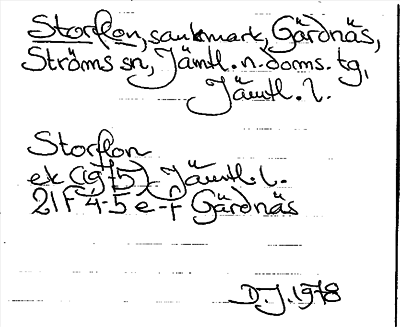 Storflon, sankmark, Gärdnäs,
Ströms sn, Jämtl. n. doms. tg,
Jämtl. l.
Storflon
ek (gf5) Jämtl. l.
21F 4-5 e-f Gärdnäs
D.J. 1978